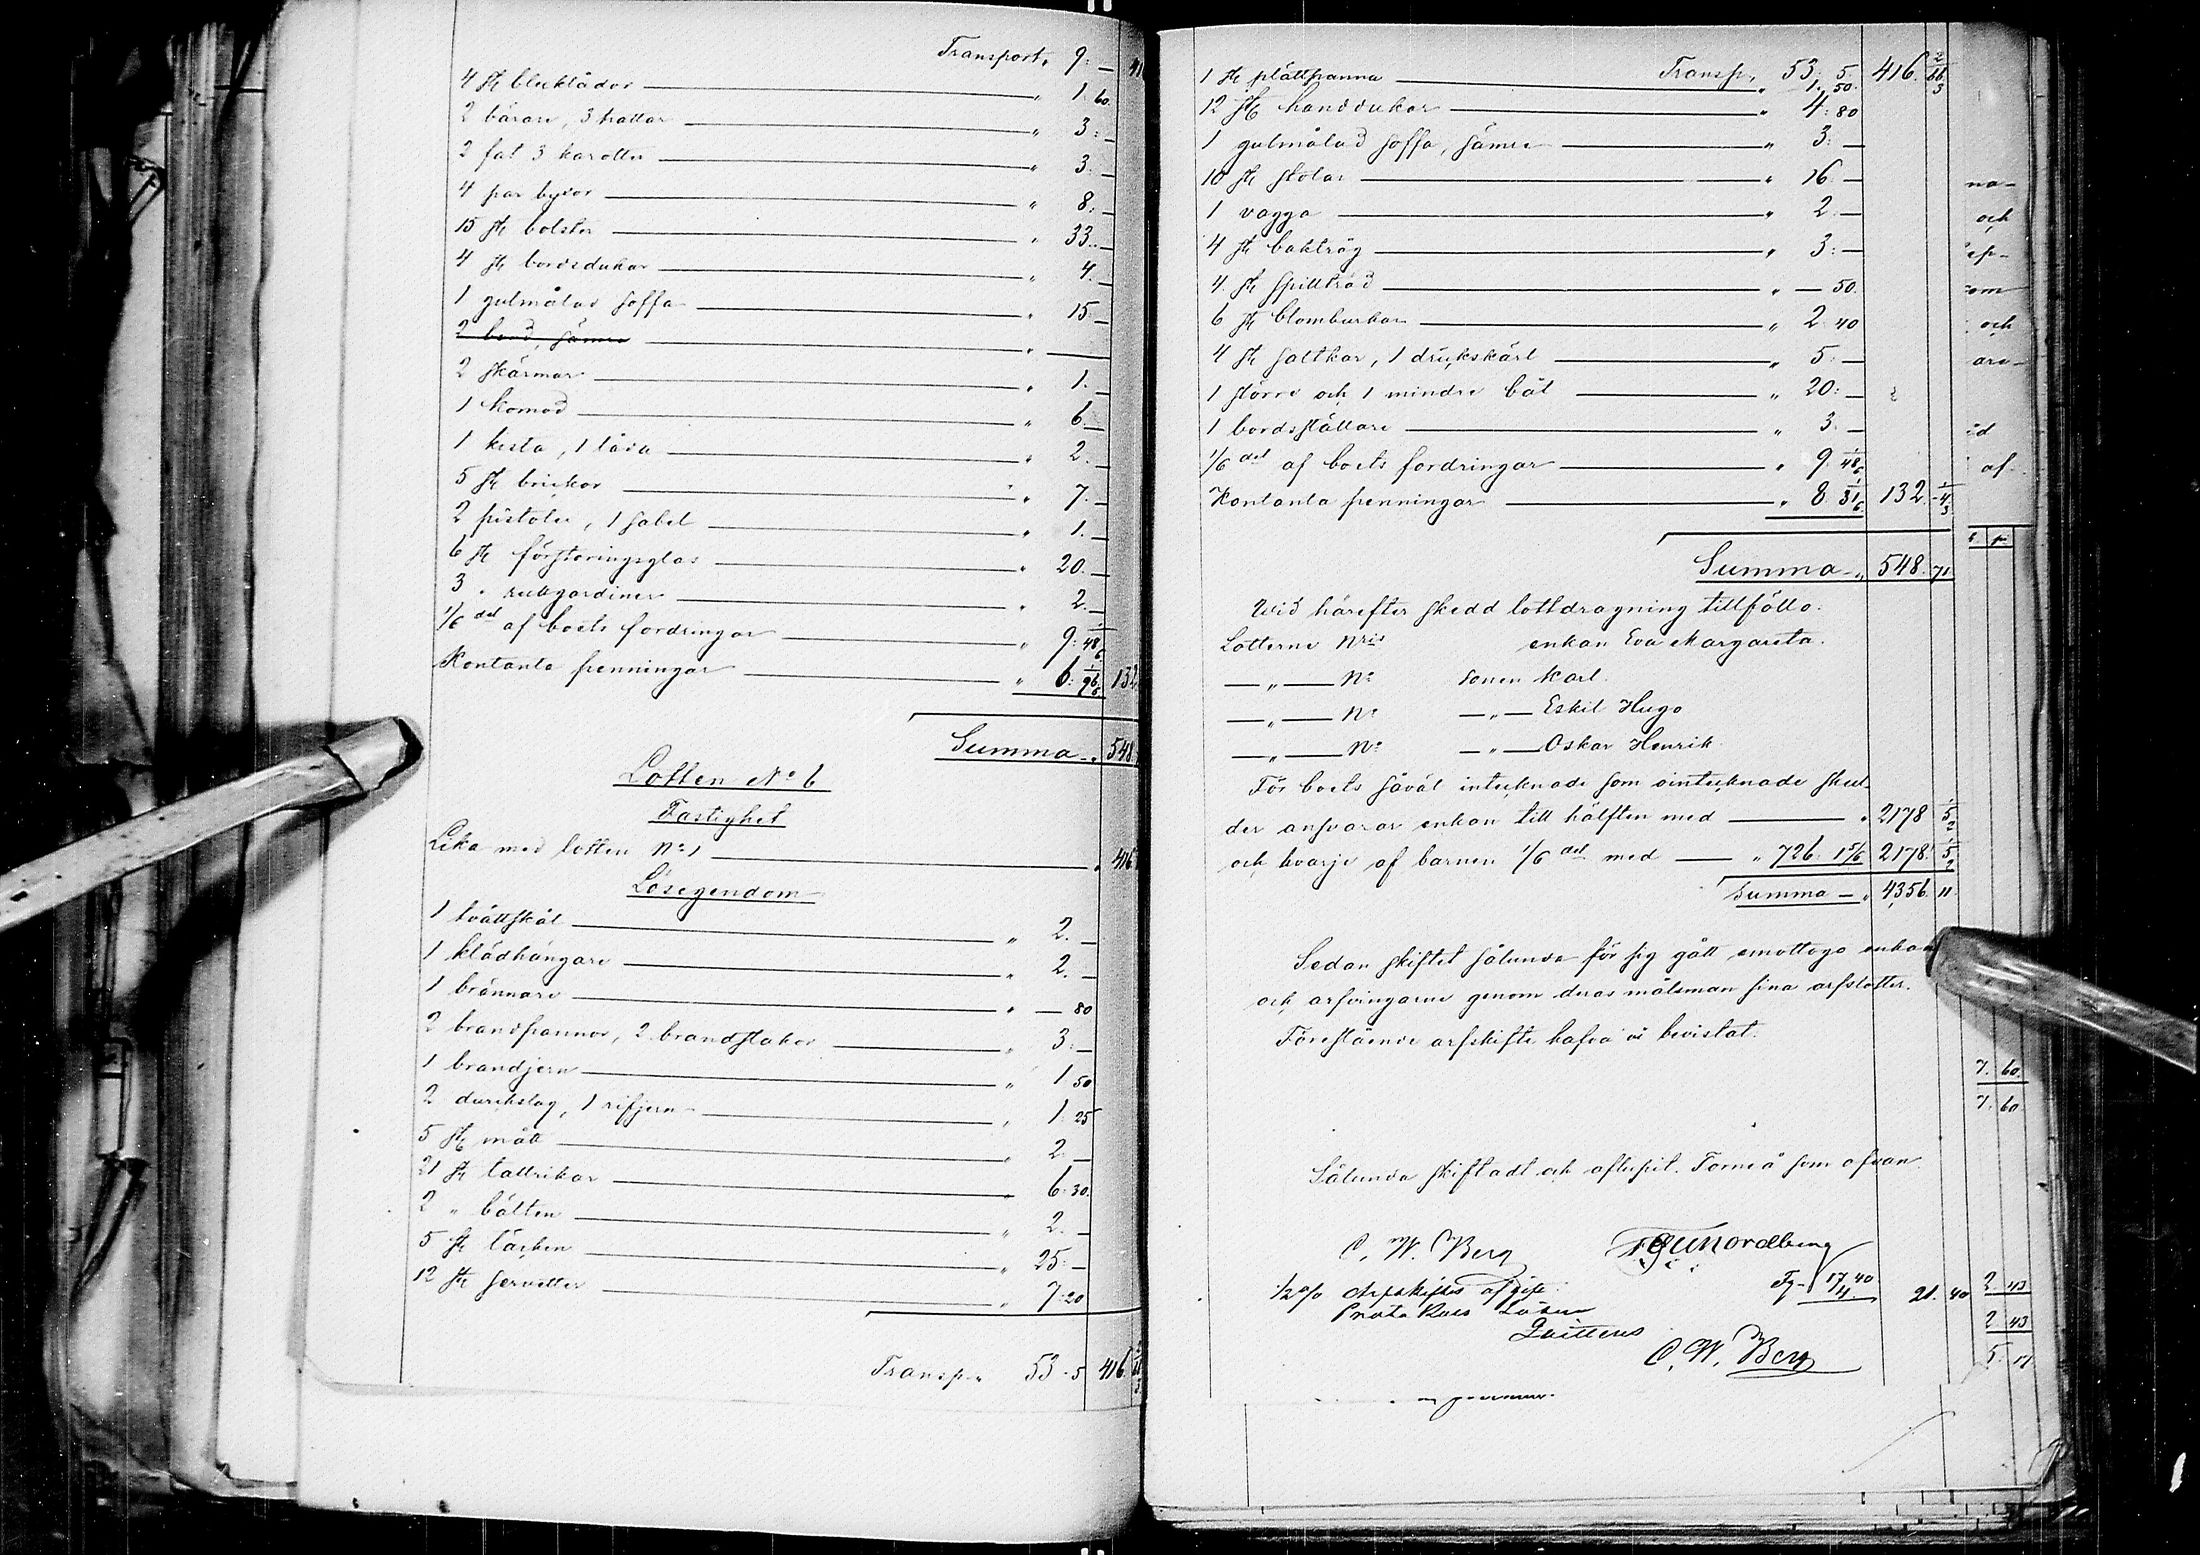 Transport " 9. — 41
4 st blecklådor — " 1. 60.
2 bärare, 3 hattar — " 3: —
2 fat 3 karotter — " 3. —
4 par byxor — " 8. —
15 st bolster — " 33. —
4 st bordsdukar — " 4. —
1 gulmålad soffa — " 15. —
2 bord, sämre — " —
2 skärmar — " 1. —
1 komod — " 6. —
1 kista, 1 låda — " 2. —
5 st brickor — " 7. —
2 pistoler, 1 sabel — " 1. —
6 st förstoringsglas — " 20. —
3 " rullgardiner — " 2. —
1/6 del af boets fordringar — " 9: 48 1/6
Kontanta penningar — " 6: 132
Summa " 548
Lotten No 6
Fastighet
Lika med lotten No 1 — " 416
Lösegendom
1 tvättskål — " 2. —
1 klädhängare — " 2. —
1 brännare — " — 80
2 brandpannor, 2 brandstakar — " 3: —
1 brandjern — " 1 50
2 durchslag, 1 rifjern — " 1. 25
5 st mått — " 2. —
21 st tallrikar — " 6. 30.
2 " bälten — " 2. —
5 st täcken — " 25: —
12 st servetter — " 7: 20
Transp. " 53 . 5 416. 66 2/3
1 st plättpanna — Transp. 53. 5. 416. 66 2/3
" 1. 50.
12 st handdukar — " 4: 80
1 gulmålad soffa, sämre — " 3: —
10 st stolar — " 16 —
1 vagga — " 2. —
4 st baktråg — " 3: —
4. st — " — 50.
6 st blomburkar — " 2. 40
4 st saltkar, 1 drickskärl — " 5: —
1 större och 1 mindre båt — " 20: —
1 bordsställare — " 3. —
1/6 del af boets fordringar — " 9. 48 1/6
Kontanta penningar — " 8. 31 1/6 132. 4 1/3
Summa " 548. 71
Wid härefter skedd lottdragning tillföllo:
Lotterne Nris enkan Eva Margareta.
— " — No sonen Karl.
— " — No — " — Eskil Hugo
— " — No — " — Oskar Henrik
För boets såväl intecknade som ointecknade skul-
der ansvarar enkan till hälften med — " 2178 5 1/2
och hvarje af barnen 1/6 del med — " 726. 1 5/6 2178. 5 1/2
Summa — " 4356. 11
Sedan skiftet sålunda för sig gått emottogo enkan
och arfvingarne genom deras målsman sina arfslotter.
Förestående arfskifte hafva vi bevistat.
Sålunda skiftadt och aflupit. Torneå som ofvan.
C. W. Berg Nordberg
1/2 % Arfskiftes afgift Fg. 17 40
Protokolls Lösen 4. 21. 40
Quitteras
C. W. Berg
na-
och
ep-
som
och
are-
id
af
7. 60.
7. 60.
2 43
2 43
5. 17